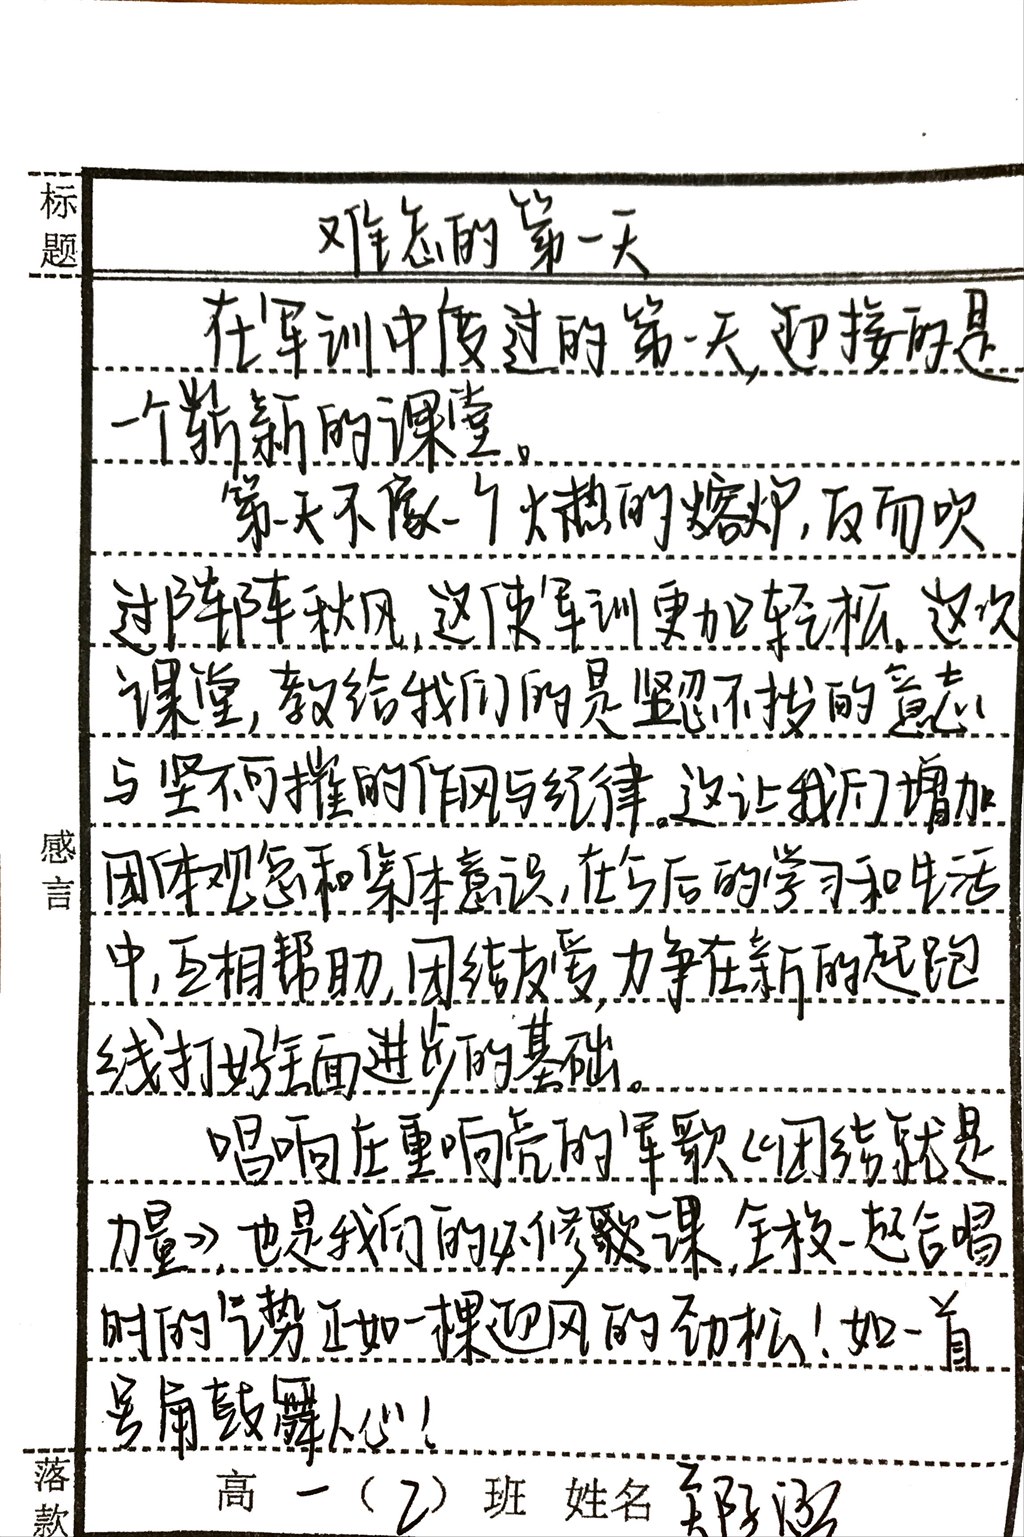 标题
难忘的第一天
在军训中度过的第一天,迎接的是
一个崭新的课堂。
第一天不像一个火热的熔炉,反而吹
过阵阵秋风,这使军训更加轻松。这次
课堂,教给我们的是坚忍不拔的意志
与坚不可摧的作风与纪律。这让我们增加
团体观念和集体意识,在今后的学习和生活
中,互相帮助,团结友爱,力争在新的起跑
线打好全面进步的基础。
感言
唱响在重响亮的军歌《团结就是
力量》,也是我们的必修歌课,全校一起合唱
时的气势正如一棵迎风的劲松!如一首
号角鼓舞人心!
落款
高一(2)班 姓名 郑涵